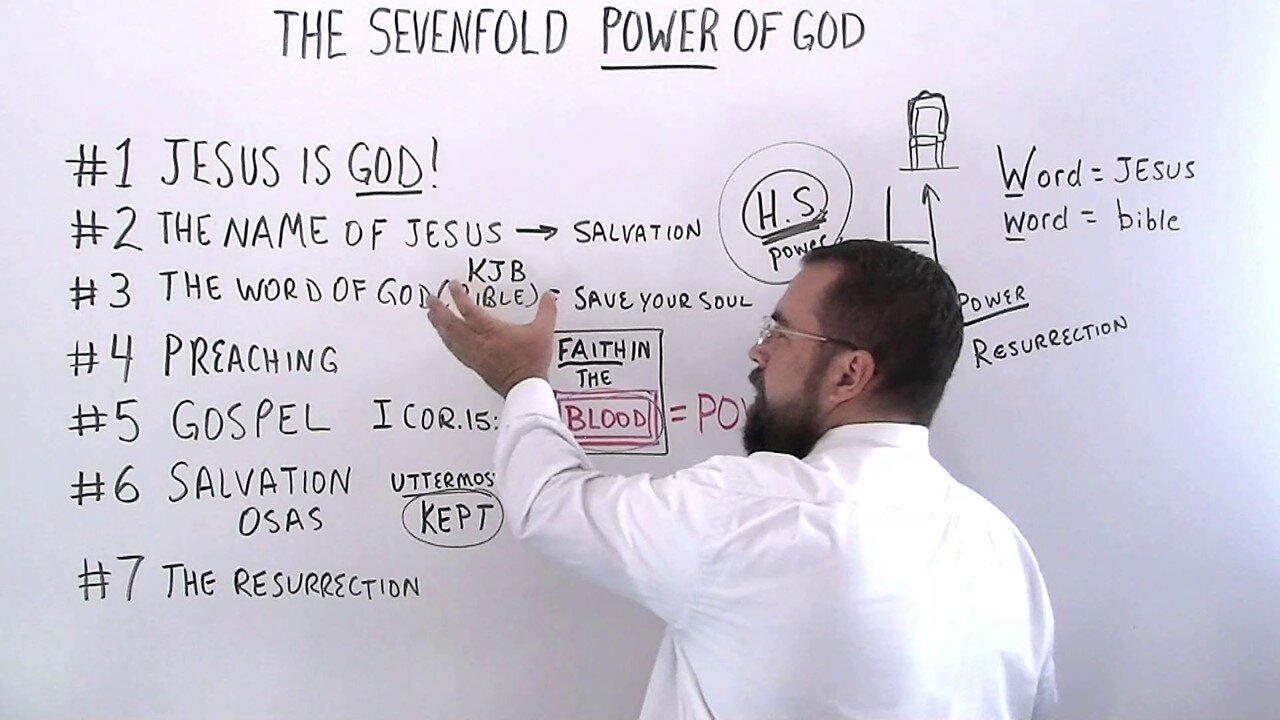 THE SEVENFOLD POWER OF GOD
#1 JESUS IS GOD!
#2 THE NAME OF JESUS → SALVATION
KJB
#3 THE WORD OF GOD (BIBLE) = SAVE YOUR SOUL
#4 PREACHING
#5 GOSPEL I COR.15:
#6 SALVATION UTTERMOS
OSAS KEPT
#7 THE RESURRECTION
FAITH IN
THE
BLOOD = PO
H.S.
power
Word = JESUS
word = bible
POWER
RESURRECTION